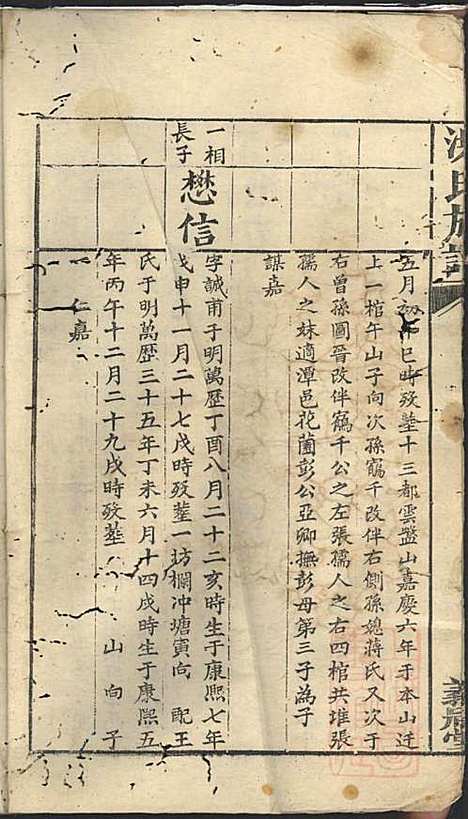 氏族譜
五月初 巳時歿塟十三都雲盤山嘉慶六年于本山迁
上一棺午山子向次孫鶴千改伴右側孫媳蔣氏又次于
右曾孫圖晉改伴鶴千公之左張孺人之右四棺共堆張
孺人之妹適潭邑花薗彭公亞卿撫彭母第三子為子
謀嘉
一相
長子
懋信
字誠甫于明萬歷丁酉八月二十二亥時生于康熙七年
戊申十一月二十七戌時歿塟一坊欄冲塘寅向 配王
氏于明萬歷三十五年丁未六月十四戌時生于康熙五
年丙午十二月二十九戌時歿塟 山向 子
仁嘉